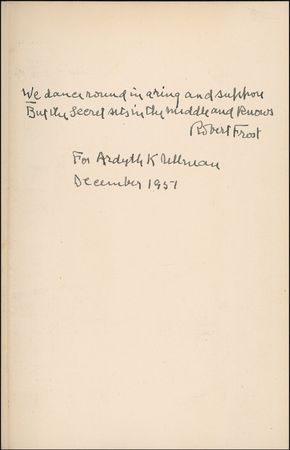 We dance round in a ring and suppose
But the Secret sits in the middle and knows
Robert Frost
For Ardyth K Ullman
December 1951